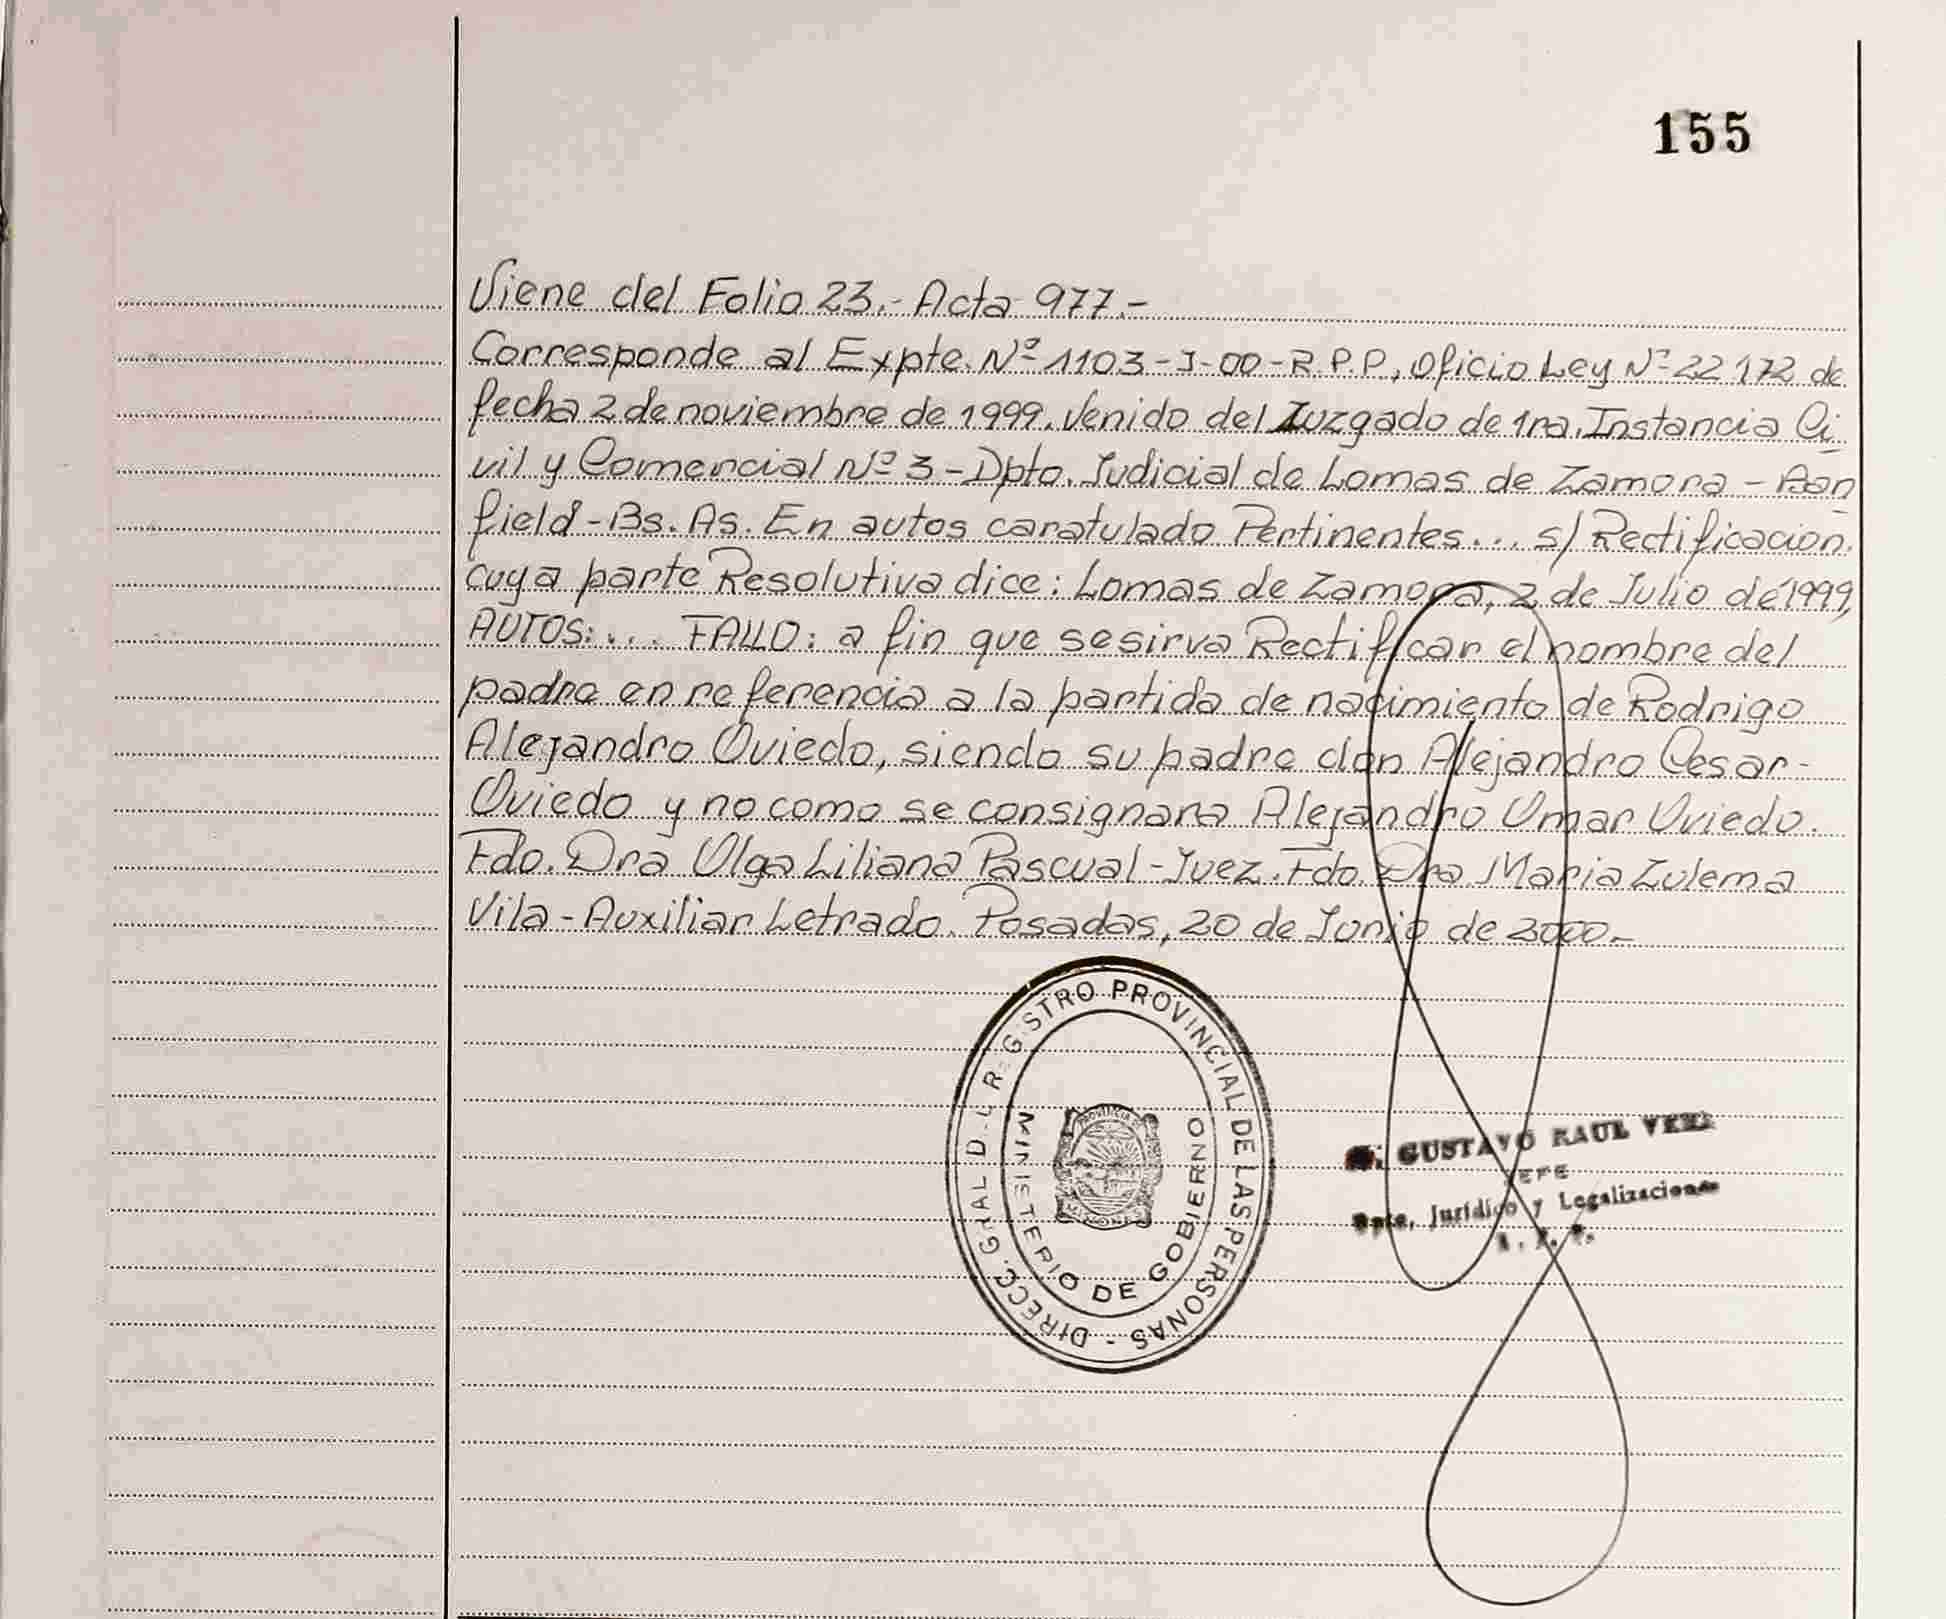 155
Viene del Folio 23.- Acta 977.-
Corresponde al Expte. Nº 1103-J-00-R.P.P, Oficio Ley Nº 22172 de
fecha 2 de noviembre de 1999. Venido del Juzgado de 1ra. Instancia Ci
vil y Comercial Nº 3 - Dpto. Judicial de Lomas de Zamora - Ban
field - Bs. As. En autos caratulado Pertinentes... s/ Rectificación.
cuya parte Resolutiva dice: Lomas de Zamora, 2 de Julio de 1999,
AUTOS:... FALLO: a fin que se sirva Rectificar el nombre del
padre en referencia a la partida de nacimiento de Rodrigo
Alejandro Oviedo, siendo su padre don Alejandro Cesar-
Oviedo y no como se consignara Alejandro Omar Oviedo.
Fdo. Dra Olga Liliana Pascual - Juez. Fdo. Dra. Maria Zulema
Vila - Auxiliar Letrado. Posadas, 20 de Junio de 2000.-
DIRECC. GRAL D.L REGISTRO PROVINCIAL DE LAS PERSONAS -
MINISTERIO DE GOBIERNO
PROVINCIA
MISIONES
GUSTAVO RAUL VERA
JEFE
Dpto. Jurídico y Legalizaciones